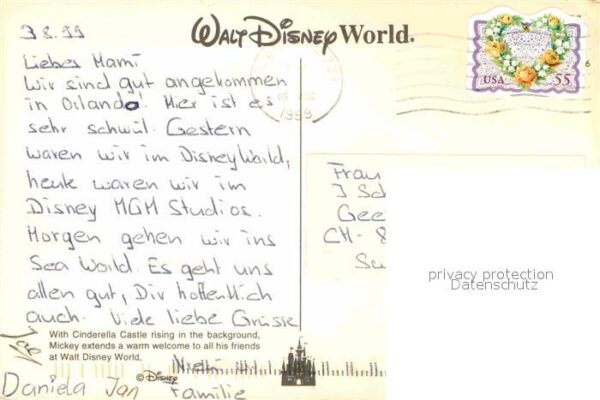 3.8.99
WALT DISNEY World.
Liebes Mami
Wir sind gut angekommen
in Orlando. Hier ist es
sehr schwül. Gestern
waren wir im DisneyWorld,
heute waren wir im
Disney MGM Studios.
Morgen gehen wir ins
Sea World. Es geht uns
allen gut, Dir hoffentlich
auch. Viele liebe Grüsse
With Cinderella Castle rising in the background,
Mickey extends a warm welcome to all his friends
at Walt Disney World.
© Disney
Daniela Jan
Familie
USA 55
1999
Frau
J Sc
Gee
CH-8
Su
privacy protection
Datenschutz